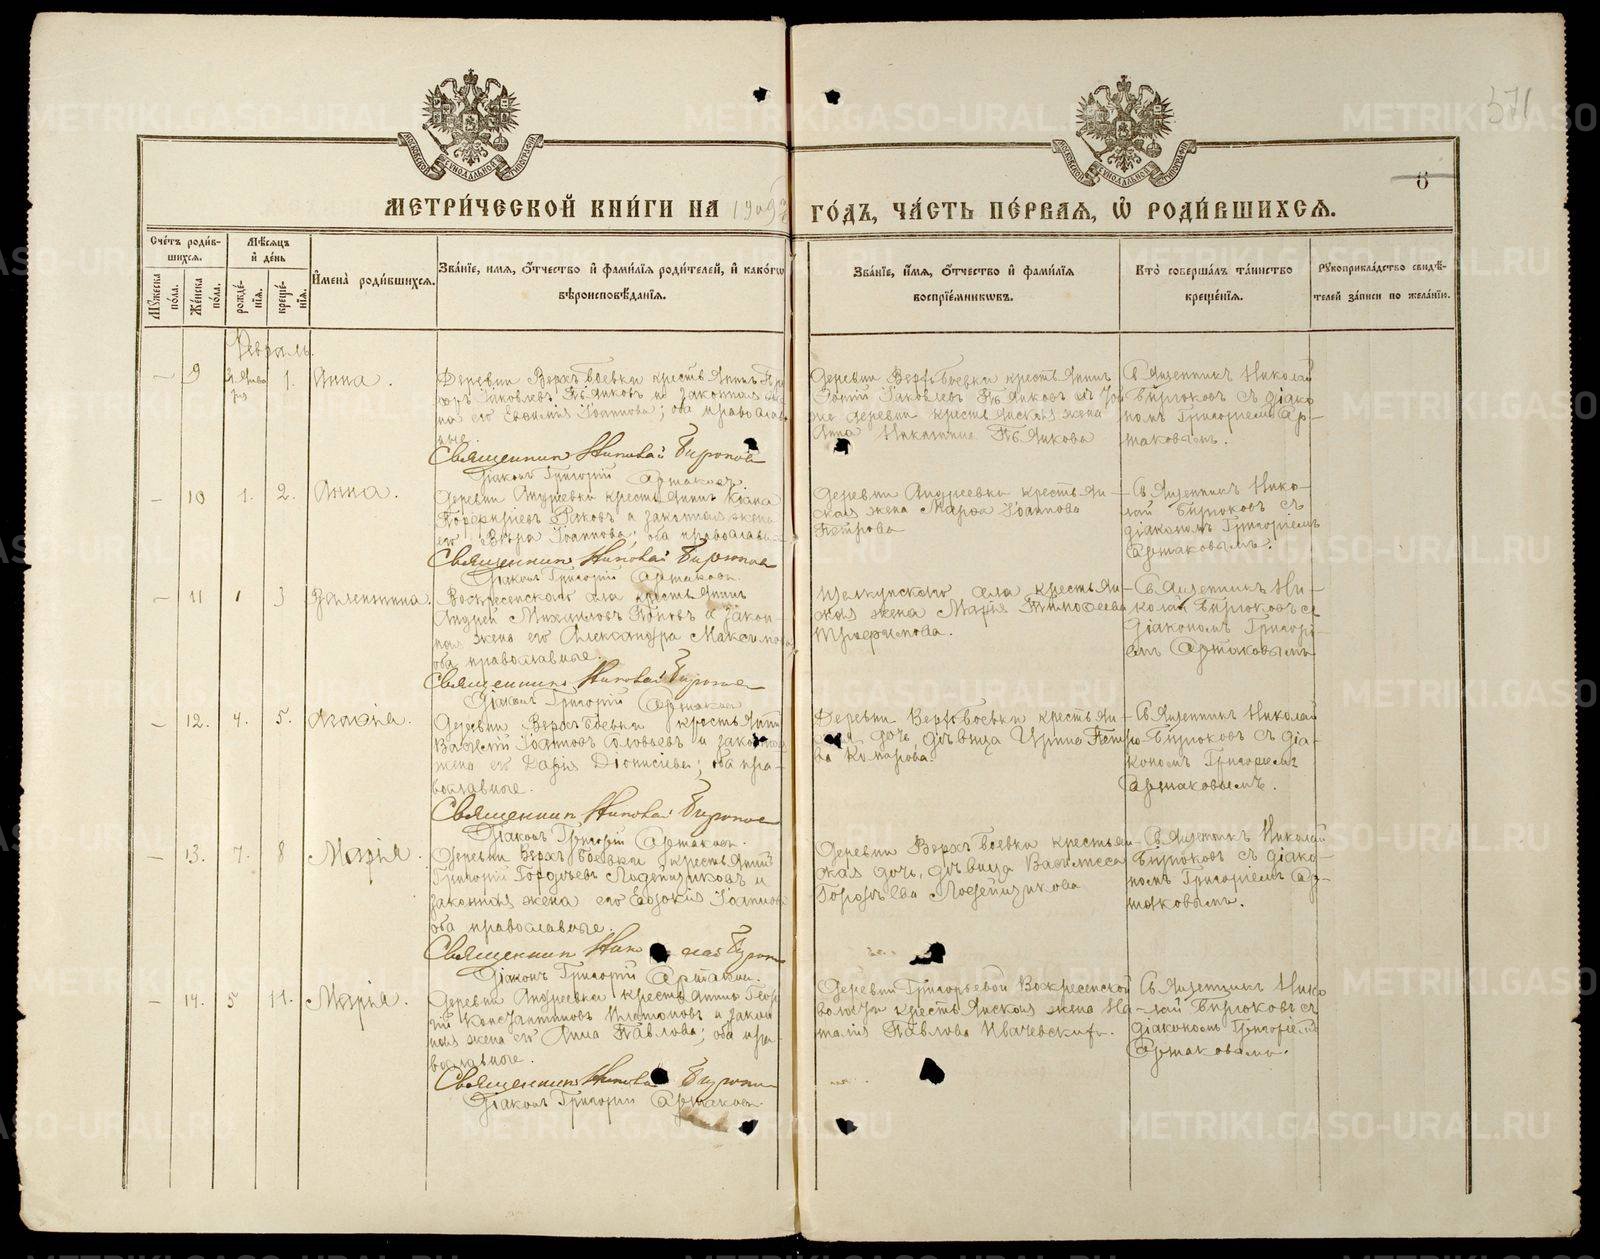 371
8
МЕТРИ́ЧЕСКОЙ КНИ́ГИ НА 1909 ГО́ДЪ, ЧА́СТЬ ПЕ́РВАЯ, Ѡ РОДИ́ВШИХСЯ.
Сче́тъ роди́вшихся.
Мꙋ́жеска по́ла.
Же́нска по́ла.
Мѣ́сяцъ и де́нь
рожде́нїя.
креще́нїя.
И́мена̀ роди́вшихся.
Зва́нїе, и́мя, о́тчество и фами́лїя роди́телей, и како́гѡ
вѣроисповѣ́данїя.
Зва́нїе, и́мя, о́тчество и фами́лїя
воспрїе́мникѡвъ.
Кто̀ соверша́лъ та́инство
креще́нїя.
Рꙋкоприкла́дство свидѣ́-
телей за́писи по жела́нїю.
Февраль.
— 9 31 Января 1. Анна.
Деревни Верхъ Боевки крестьянинъ
Яковлевъ Пьянковъ и законная же-
на его Іоаннова; оба православ-
ные.
Священникъ Николай Бирюковъ
Діаконъ Григорій Артаковъ.
Деревни Верхъ Боевки крестьянинъ
Яковлевъ Пьянковъ и той
же деревни крестьянская жена
Анна Никитина Пьянкова
Священникъ Николай
Бирюковъ съ діако-
номъ Григоріемъ Ар-
таковымъ.
— 10 1. 2. Анна.
Деревни Андреевки крестьянинъ
Порфиріевъ и законная жена
его Вѣра Іоаннова; оба православн
Священникъ Николай Бирюковъ
Діаконъ Григорій Артаковъ.
Деревни Андреевки крестьян-
ская жена Марѳа Іоаннова
Петрова
Священникъ Нико-
лай Бирюковъ съ
діакономъ Григоріемъ
Артаковымъ.
— 11 1 3 Валентина.
Воскресенскаго села крестьянинъ
Андрей Михаиловъ Поповъ и закон-
ная жена его Александра Максимова
оба православные.
Священникъ Николай Бирюковъ
Діаконъ Григорій Артаковъ
Щелкунскаго села крестьян-
ская жена Марія Тимофеева
Трофимова.
Священникъ Ни-
колай Бирюковъ съ
діакономъ Григорі-
емъ Артаковымъ
— 12. 4. 5. Агаѳія.
Деревни Верхъ Боевки крестьянинъ
Василій Іоанновъ Соловьевъ и законная
жена его Дарія Діонисіева; оба пра-
вославные.
Священникъ Николай Бирюковъ
Діаконъ Григорій Артаковъ.
Деревни Верхъ Боевки крестьян-
дочь, дѣвица Ирина Петро-
ва Комарова.
Священникъ Николай
Бирюковъ съ діа-
кономъ Григоріемъ
Артаковымъ.
— 13. 7. 8 Марія.
Деревни Верхъ Боевки крестьянинъ
Григорій Гордѣевъ Лодейщиковъ и
законная жена его Евдокія Іоаннова
оба православные.
Священникъ Николай Бирюковъ
Діаконъ Григорій Артаковъ.
Деревни Верхъ Боевки крестьян-
ская дочь, дѣвица Василисса
Гордѣева Лодейщикова
Священникъ Николай
Бирюковъ съ діако-
номъ Григоріемъ Ар-
таковымъ.
— 14. 5 11. Марія.
Деревни Андреевки крестьянинъ Геор-
гій Константиновъ Платоновъ и закон
ная жена его Анна Павлова; оба пра-
вославные.
Священникъ Николай Бирюковъ
Діаконъ Григорій Артаковъ.
Деревни Григорьевой Воскресенской
волости крестьянская жена На-
талія Павлова
Священникъ Нико-
лай Бирюковъ съ
діакономъ Григоріемъ
Артаковымъ.
METRIKI.GASO-URAL.RU